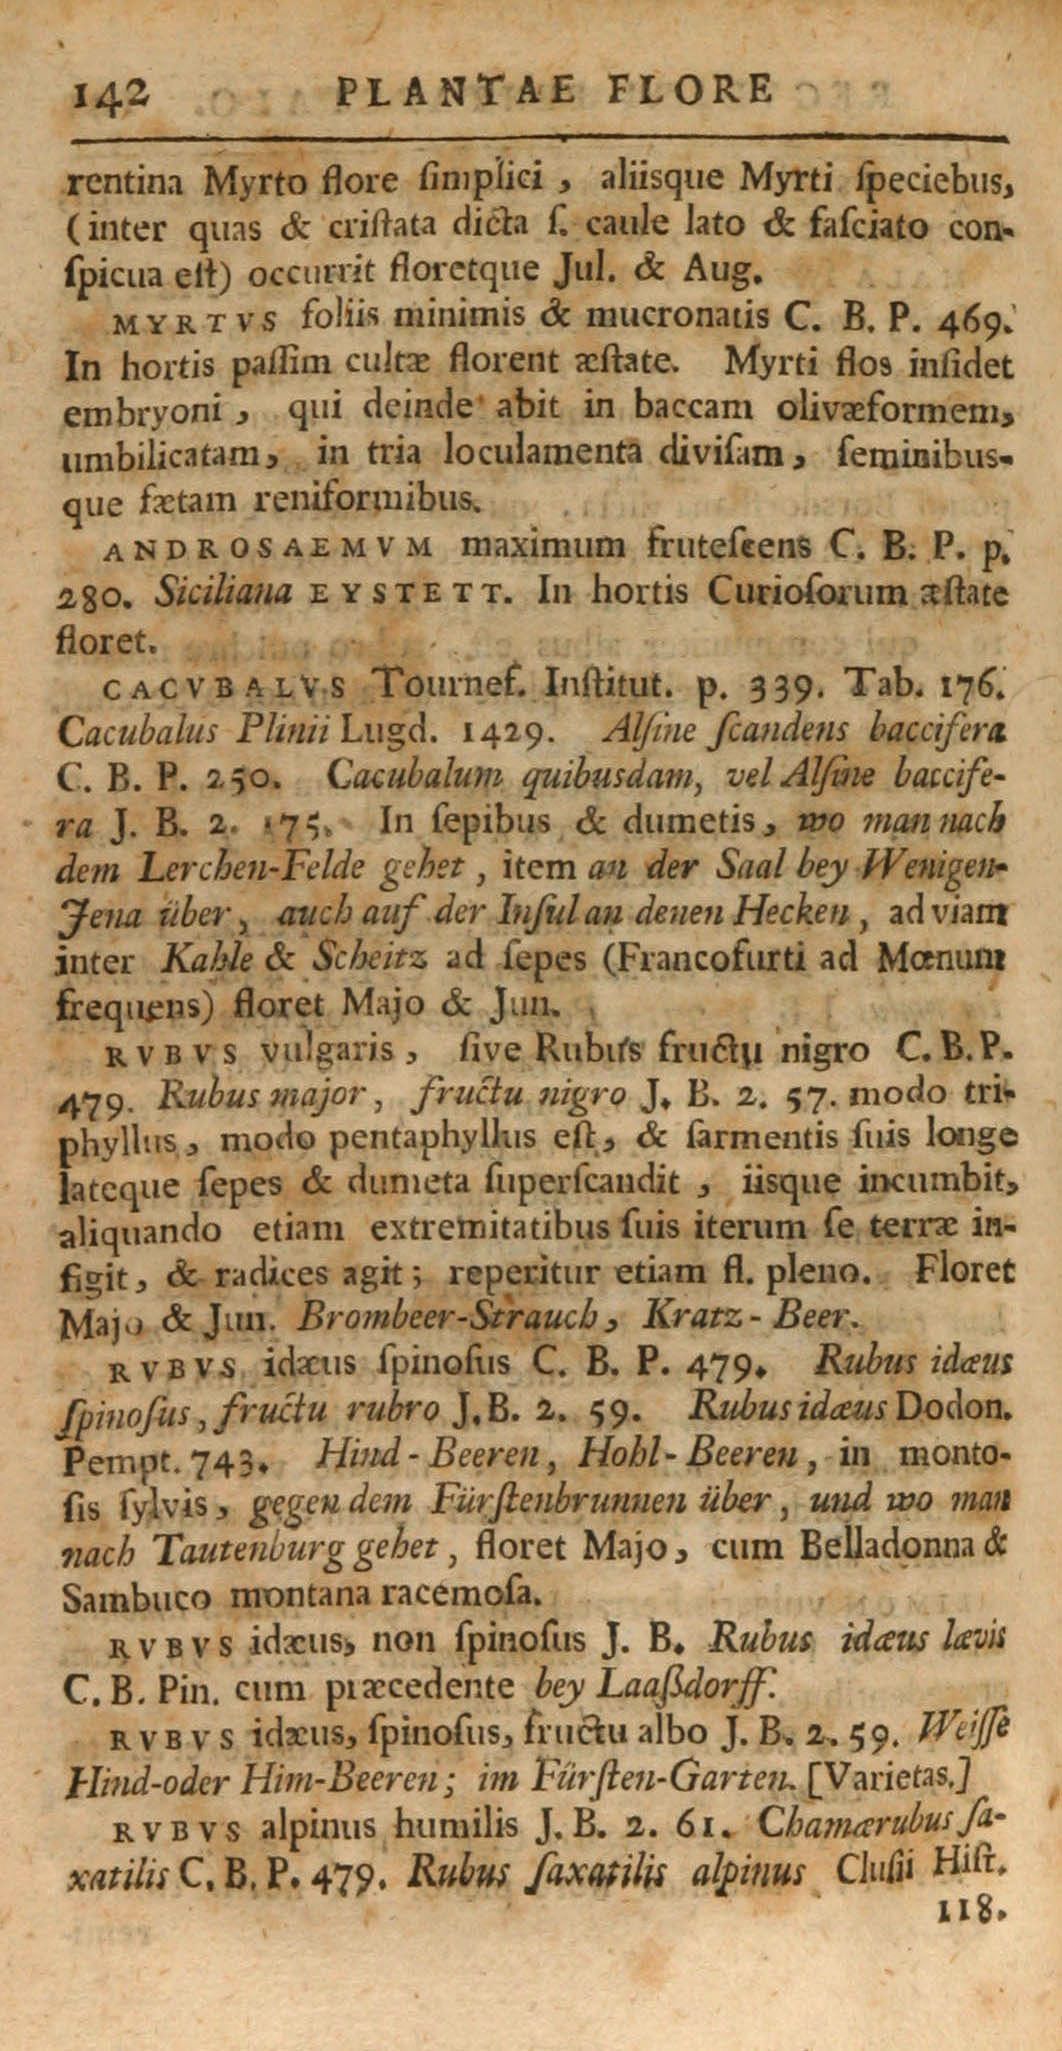 142 PLANTAE FLORE
rentina Myrto flore ſimplici, aliisque Myrti ſpeciebus,
(inter quas & criſtata dicta ſ. caule lato & faſciato con-
ſpicua eſt) occurrit floretque Jul. & Aug.
MYRTVS foliis minimis & mucronatis C. B. P. 469.
In hortis paſſim cultæ florent æſtate. Myrti flos inſidet
embryoni, qui deinde abit in baccam olivæformem,
umbilicatam, in tria loculamenta diviſam, ſeminibus-
que fætam reniformibus.
ANDROSAEMVM maximum fruteſcens C. B. P. p.
280. Siciliana EYSTETT. In hortis Curioſorum æſtate
floret.
CACVBALVS Tournef. Inſtitut. p. 339. Tab. 176.
Cacubalus Plinii Lugd. 1429. Alſine ſcandens baccifera
C. B. P. 250. Cacubalum quibusdam, vel Alſine baccife-
ra J. B. 2. 175. In ſepibus & dumetis, wo man nach
dem Lerchen-Felde gehet, item an der Saal bey Wenigen-
Jena über, auch auf der Inſul an denen Hecken, ad viam
inter Kahle & Scheitz ad ſepes (Francofurti ad Mœnum
frequens) floret Majo & Jun.
RVBVS vulgaris, ſive Rubus fructu nigro C. B. P.
479. Rubus major, fructu nigro J. B. 2. 57. modo tri-
phyllus, modo pentaphyllus eſt, & ſarmentis ſuis longe
lateque ſepes & dumeta ſuperſcandit, iisque incumbit,
aliquando etiam extremitatibus ſuis iterum ſe terræ in-
figit, & radices agit; reperitur etiam fl. pleno. Floret
Majo & Jun. Brombeer-Strauch, Kratz-Beer.
RVBVS idæus ſpinoſus C. B. P. 479. Rubus idæus
ſpinoſus, fructu rubro J. B. 2. 59. Rubus idæus Dodon.
Pempt. 743. Hind-Beeren, Hohl-Beeren, in monto-
ſis ſylvis, gegen dem Fürſtenbrunnen über, und wo man
nach Tautenburg gehet, floret Majo, cum Belladonna &
Sambuco montana racemoſa.
RVBVS idæus, non ſpinoſus J. B. Rubus idæus lævis
C. B. Pin. cum præcedente bey Laaßdorff.
RVBVS idæus, ſpinoſus, fructu albo J. B. 2. 59. Weiſſe
Hind-oder Him-Beeren; im Fürſten-Garten. [Varietas.]
RVBVS alpinus humilis J. B. 2. 61. Chamærubus ſa-
xatilis C. B. P. 479. Rubus ſaxatilis alpinus Cluſii Hiſt.
118.